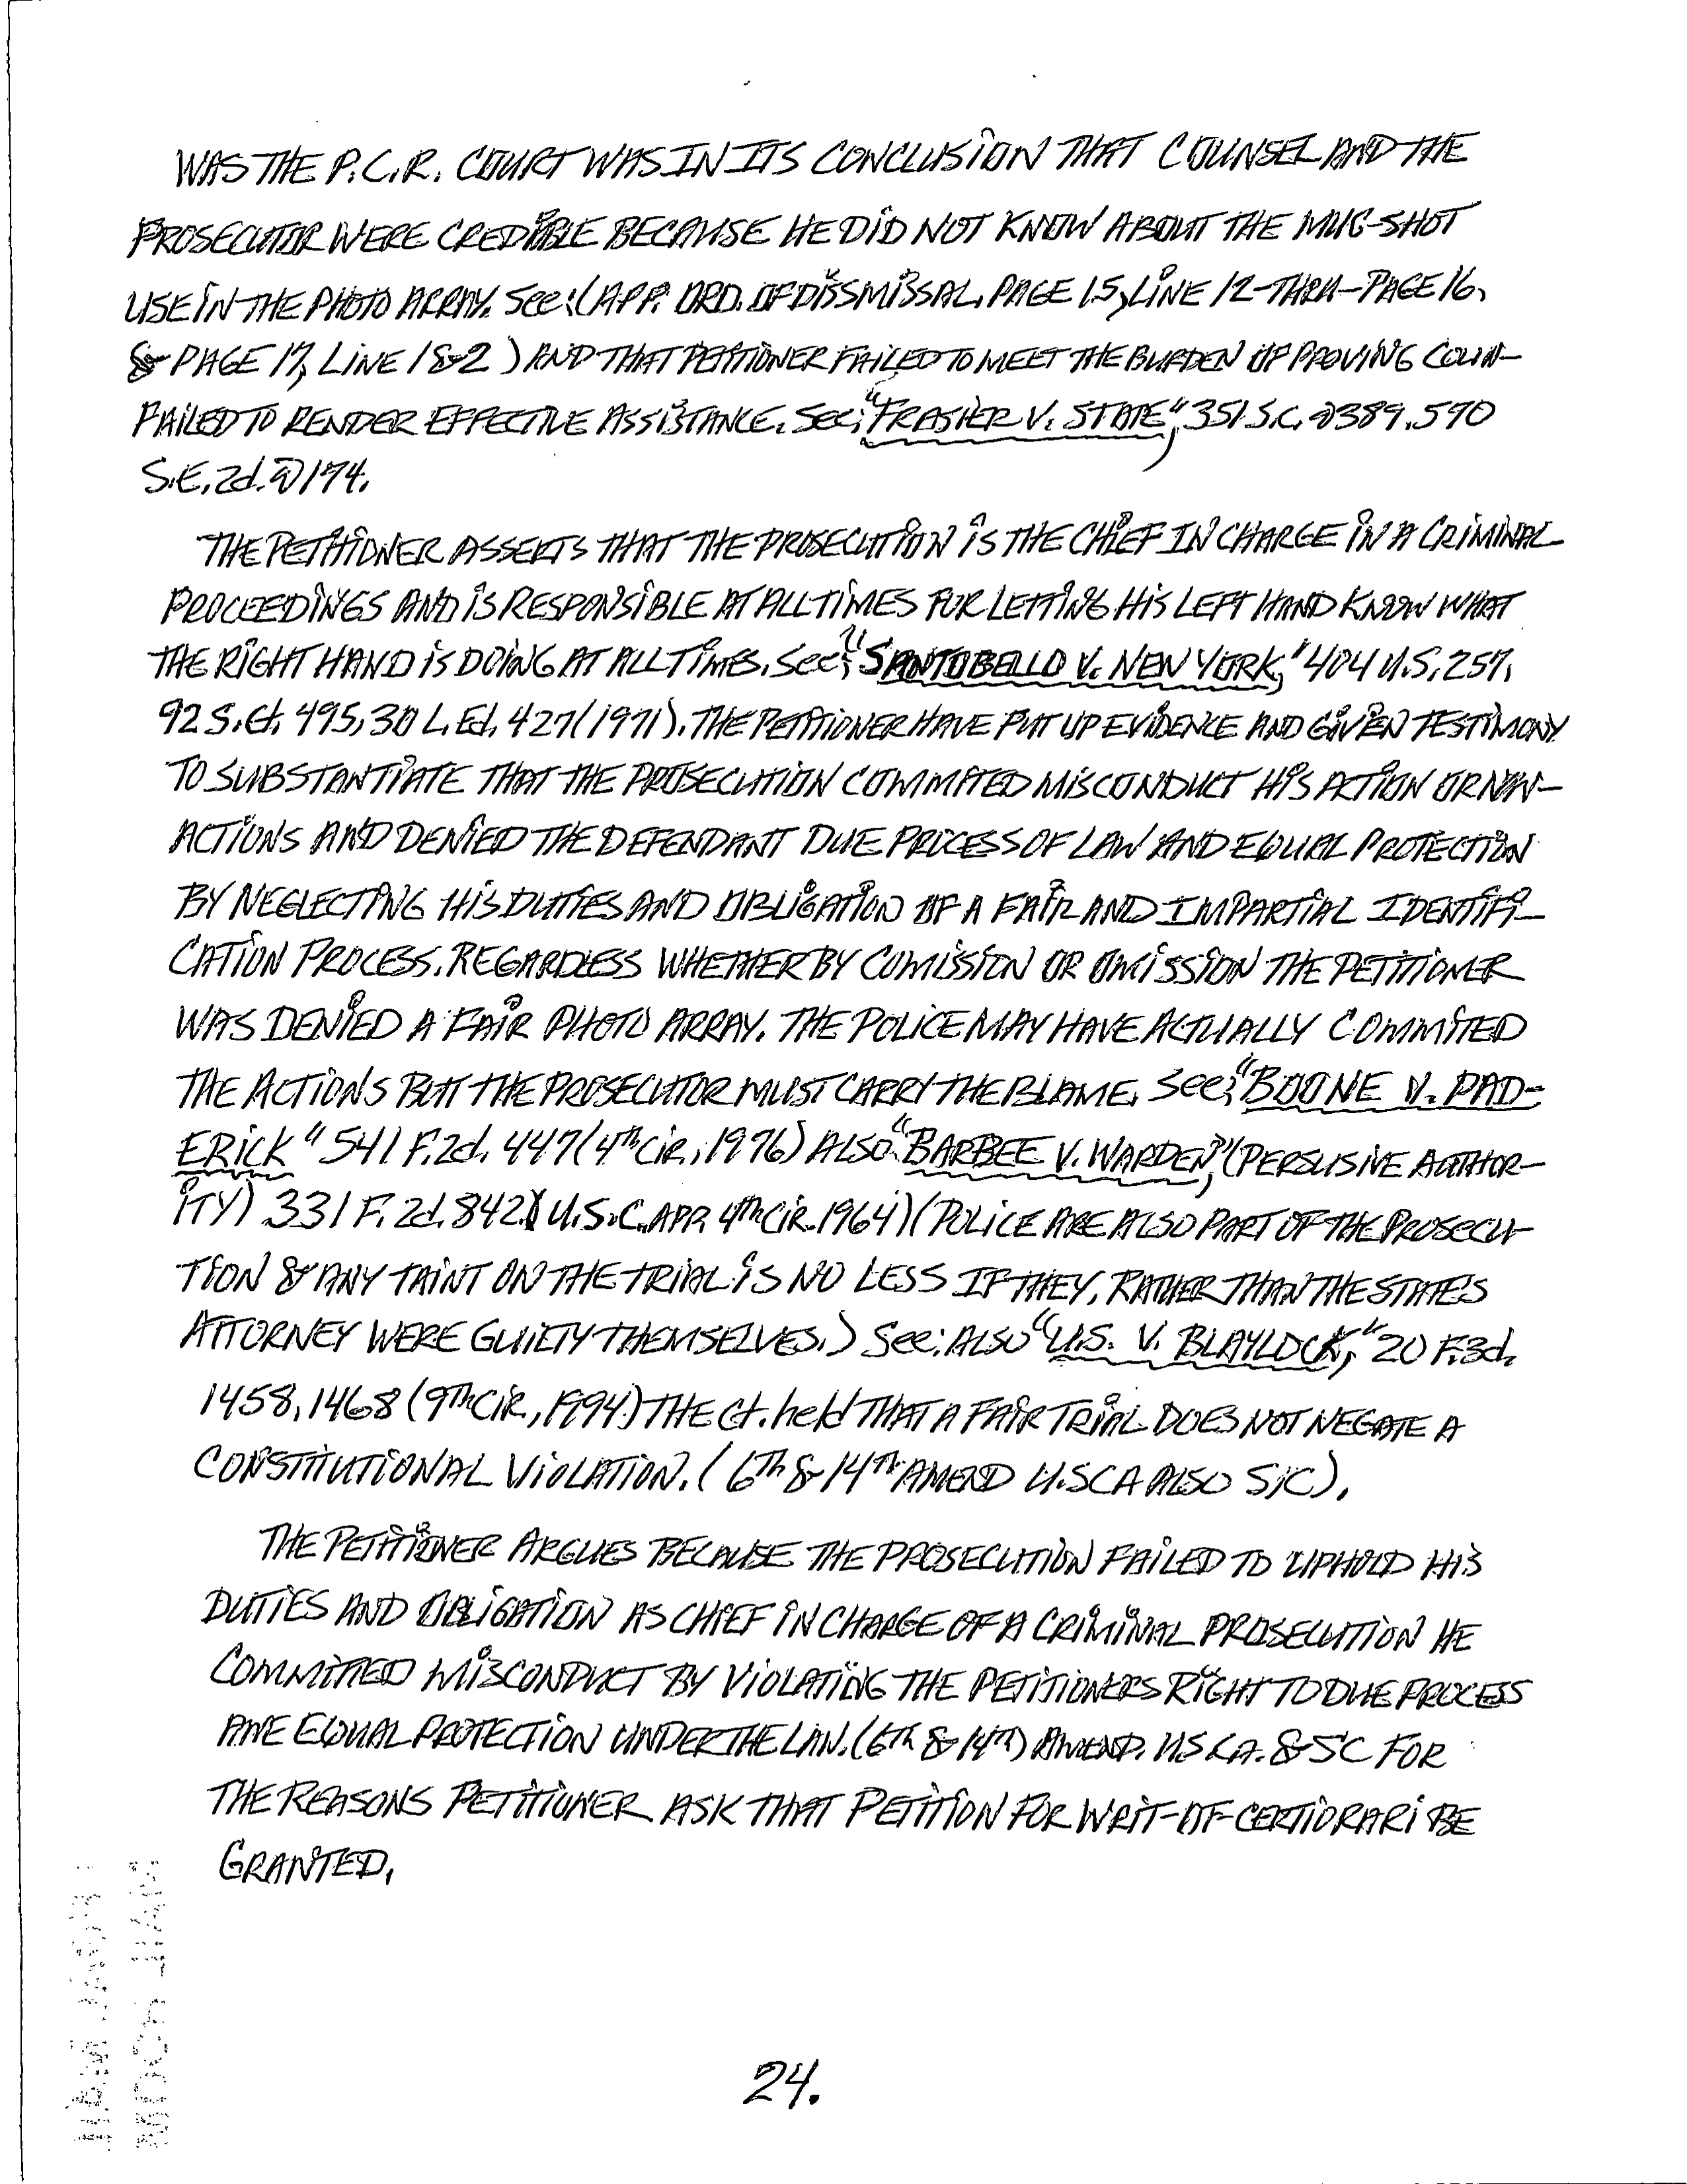 WAS THE P.C.R. COURT WAS IN ITS CONCLUSION THAT COUNSEL AND THE
PROSECUTOR WERE CREDIBLE BECAUSE HE DID NOT KNOW ABOUT THE MUG-SHOT
USE IN THE PHOTO ARRAY. See:(APP. ORD. OF DISSMISSAL, PAGE 15, LINE 12-THRU-PAGE 16,
& PAGE 17, LINE 1&2) AND THAT PETITIONER FAILED TO MEET THE BURDEN OF PROVING COUN-
FAILED TO RENDER EFFECTIVE ASSISTANCE. See: "FRASIER V. STATE," 351 S.C. @389.570
S.E.2d.@174.
THE PETITIONER ASSERTS THAT THE PROSECUTION IS THE CHIEF IN CHARGE IN A CRIMINAL
PROCEEDINGS AND IS RESPONSIBLE AT ALL TIMES FOR LETTING HIS LEFT HAND KNOW WHAT
THE RIGHT HAND IS DOING AT ALL TIMES. See; "SANTOBELLO V. NEW YORK," 404 U.S. 257,
92 S.Ct. 495, 30 L.Ed. 427(1971). THE PETITIONER HAVE PUT UP EVIDENCE AND GIVEN TESTIMONY
TO SUBSTANTIATE THAT THE PROSECUTION COMMITED MISCONDUCT HIS ACTION OR NON-
ACTIONS AND DENIED THE DEFENDANT DUE PROCESS OF LAW AND EQUAL PROTECTION
BY NEGLECTING HIS DUTIES AND OBLIGATION OF A FAIR AND IMPARTIAL IDENTIFI-
CATION PROCESS. REGARDLESS WHETHER BY COMISSION OR OMISSION THE PETITIONER
WAS DENIED A FAIR PHOTO ARRAY. THE POLICE MAY HAVE ACTUALLY COMMITED
THE ACTIONS BUT THE PROSECUTOR MUST CARRY THE BLAME. See; "BOONE V. PAD-
ERICK" 541 F.2d. 447(4th Cir. 1976) ALSO "BARBEE V. WARDEN," (PERSUSIVE AUTHOR-
ITY) 331 F.2d.842.( U.S.C.APP. 4th Cir. 1964) (POLICE ARE ALSO PART OF THE PROSECU-
TION & ANY TAINT ON THE TRIAL IS NO LESS IF THEY, RATHER THAN THE STATES
ATTORNEY WERE GUILTY THEMSELVES.) See: ALSO "U.S. V. BLAYLOCK," 20 F.3d.
1458, 1468 (9th Cir., 1994.) THE Ct. held THAT A FAIR TRIAL DOES NOT NEGATE A
CONSTITUTIONAL VIOLATION. ( 6th & 14th AMEND U.SCA ALSO S.C).
THE PETITIONER ARGUES BECAUSE THE PROSECUTION FAILED TO UPHOLD HIS
DUTIES AND OBLIGATION AS CHIEF IN CHARGE OF A CRIMINAL PROSECUTION HE
COMMITTED MISCONDUCT BY VIOLATING THE PETITIONERS RIGHT TO DUE PROCESS
ANE EQUAL PROTECTION UNDER THE LAW. (6th & 14th) AMEND. USCA. & SC FOR
THE REASONS PETITIONER ASK THAT PETITION FOR WRIT-OF-CERTIORARI BE
GRANTED.
24.